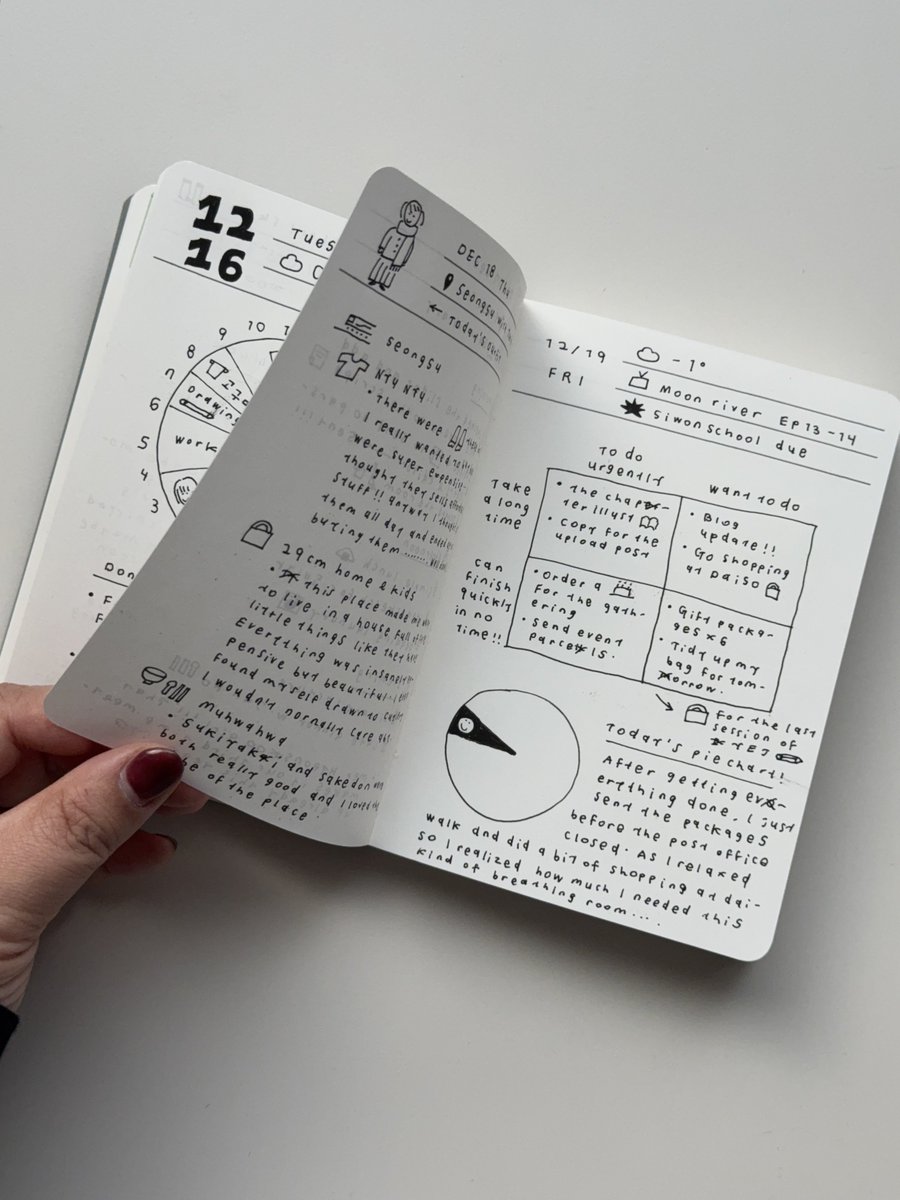 12
16
TUES
9 10
8
7
6
5
4
3
Drawing
work
Don
F
F
DEC 18 THU
Seongsu with
← TODAY'S OUTFIT
Seongsu
NTY NTY
• There were
I really wanted to
were super expensive
thought they sells
stuff!! anyway I thought
them all day and
buying them ........
29cm home & kids
• this place made me
to live in a house full of
little things like they
Everything was insanely
pensive but beautiful.
found myself drawn to
I wouldn't normally care
muhwahwa
• Sukiyaki and sakedon were
both really good and I loved the
vibe of the place.
12/19
FRI
-1°
Moon river EP13-14
Siwonschool due
TO do
urgently
want to do
Take
a long
time
• The chap-
ter illust
• Copy for the
upload post
• Blog
update!!
• Go shopping
at Daiso
can
finish
quickly
in no
time!!
• Order a
for the gath-
ering
• Send event
parcels.
• Gift packa-
ges x6
• Tidy up my
bag for tom-
orrow.
→ for the last
session of
TEJ
TODAY'S pie chart!
After getting ev-
erything done, I just
sent the packages
before the post office
closed. As I relaxed
walk and did a bit of shopping at dai-
so I realized how much I needed this
kind of breathing room....